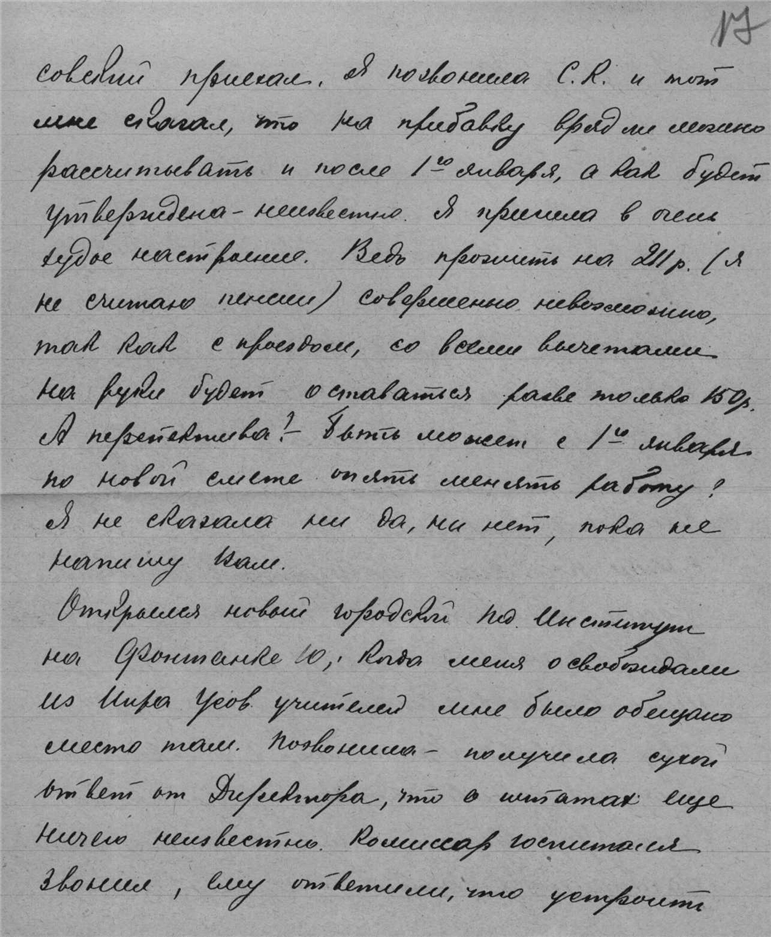 17
совский приехал. Я позвонила С.К. и тот
мне сказал, что на прибавку врядли можно
рассчитывать и после 1го января, а как будет
утверждена - неизвестно. Я пришла в очень
худое настроение. Ведь прожить на 211 р. (я
не считаю пенсии) совершенно невозможно,
так как с проездом, со всеми вычетами
на руки будет оставаться разве только 150р.
А перспектива? - Быть может с 1го января
по новой смете опять менять работу?
Я не сказала ни да, ни нет, пока не
напишу Вам.
Открылся новый городской Пед. Институт
на Фонтанке 10, когда меня освобождали
из Усов. учителей мне было обещано
место там. Позвонила - получила сухой
ответ от Директора, что о штатах еще
ничего неизвестно. Комиссар госпиталя
звонил, ему ответили, что устроить